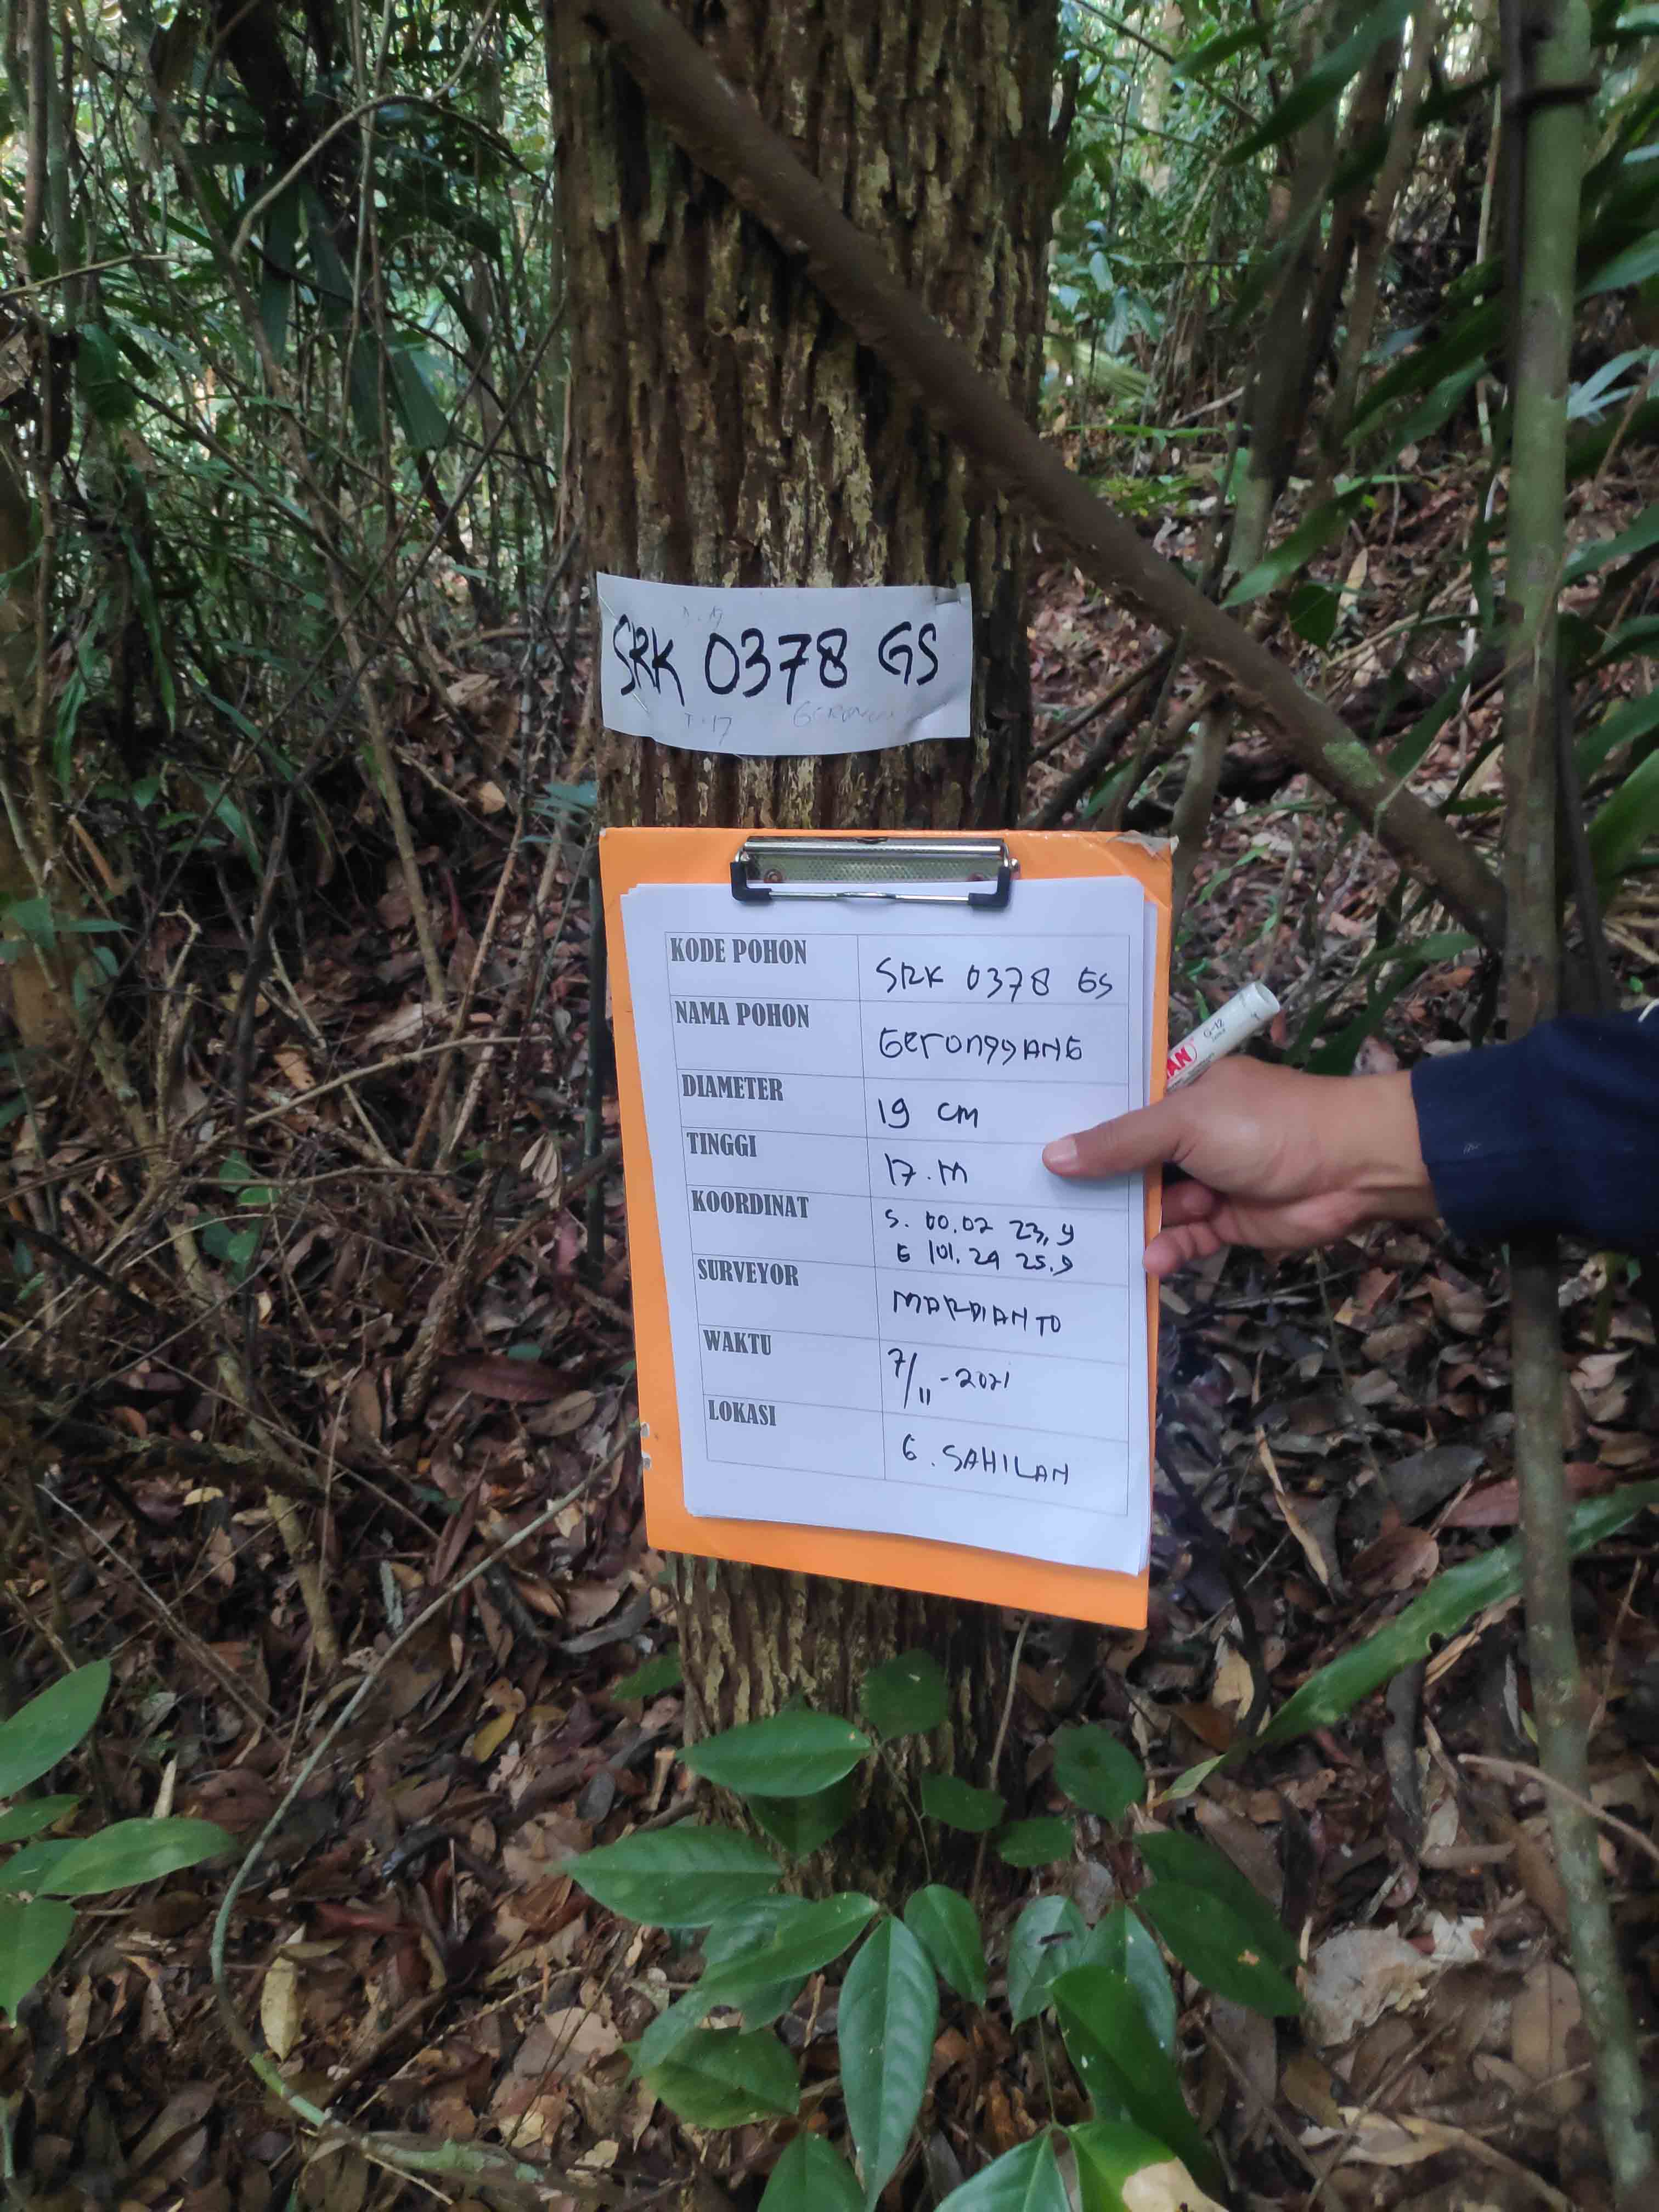 SRK 0378 GS
T.17
KODE POHON SRK 0378 GS
NAMA POHON GeronggANG
DIAMETER 19 cm
TINGGI 17.M
KOORDINAT S. 00.02 23,9
E 101.29 25.9
SURVEYOR MARDIANTO
WAKTU 7/11-2021
LOKASI G. SAHILAN
G-12